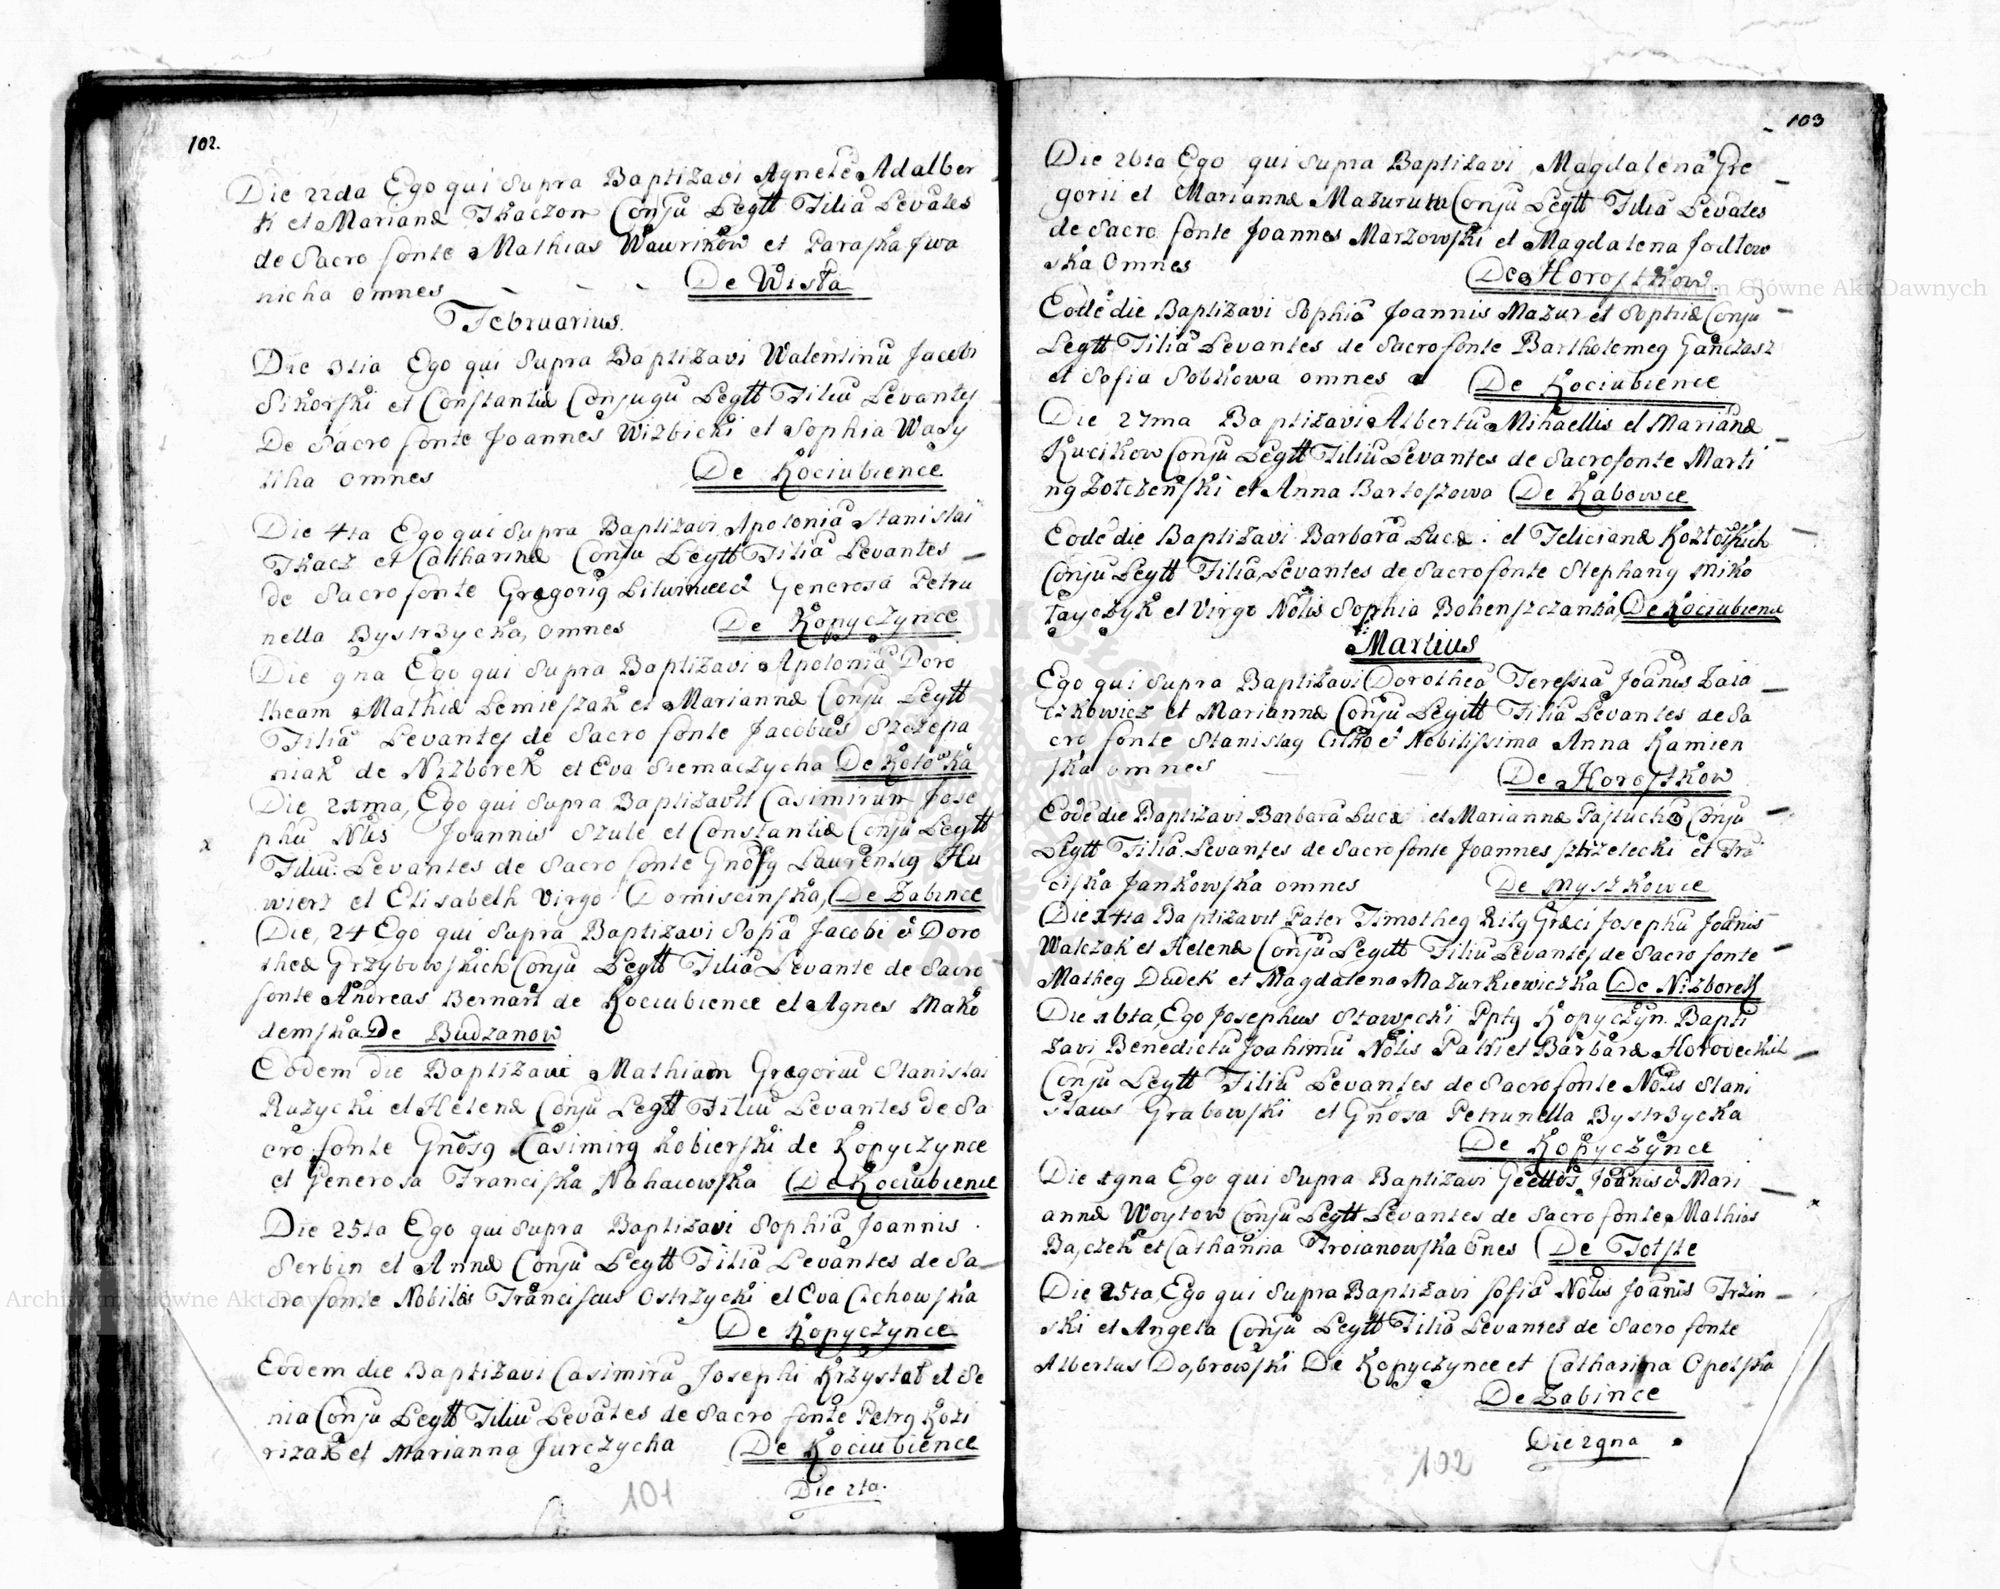 102.
Die 22da Ego qui Supra Baptizavi Agnetē Adalber
ti et Marianæ Tkaczow Conju Legtt Filiā Levātes
de Sacro fonte Mathias Wawrików et Paraska Jwa
nicha omnes - - - De Wista
Februarius.
Die 3tia Ego qui Supra Baptizavi Walentinū Jacobi
Sikorski et Constantiæ Conjugū Legtt Filiū Levantes
De Sacro fonte Joannes Wizbicki et Sophia Wasy
liha omnes De Kociubience
Die 4ta Ego qui Supra Baptizavi Apoloniā Stanislai
Tkacz et Catharinæ Conju Legtt Filiā Levantes
de Sacro fonte Gregorig et Generosa Petru
nella Bystrzycka, omnes De Kopyczynce
Die 9na Ego qui Supra Baptizavi Apoloniā Doro
theam Mathiæ Lemieszak et Mariannæ Conju Legtt
Filiā Levantes de Sacro fonte Jacobus Szczepa
niak de Nizborek et Eva Siemaczycha De Kotowka
Die 21ma, Ego qui Supra Baptizavi Casimirum Jose
phū Nōlis Joannis Szule et Constantiæ Conju Legtt
Filiū: Levantes de Sacro fonte Gnōsg Laurentig Hu
wierz et Elisabeth Virgo Domiscinska, De Zabince
Die, 24 Ego qui Supra Baptizavi Sofiā Jacobi et Doro
theæ Grzybowskich Conju Legtt Filiā Levante de Sacro
fonte Andreas Bernart de Kociubience et Agnes Mako
demska De Budzanow
Eodem die Baptizavi Mathiam Gregoriū Stanislai
Ruzycki et Helenæ Conju Legtt Filiū Levantes de Sa
cro fonte Gnōsg Casimirg Kobierski de Kopyczynce
et Generosa Franciska Nahaiowska De Kociubience
Die 25ta Ego qui Supra Baptizavi Sophiā Joannis
Serbin et Annæ Conju Legtt Filiā Levantes de Sa
cro fonte Nobiles Franciscus Ostrzycki et Eva Cichowska
De Kopyczynce
Eodem die Baptizavi Casimirū Josephi Krzystat et Se
nia Conju Legtt Filiū Levātes de Sacro fonte Petrg Kozi
rizak et Marianna Jurczycha De Kociubience
Die 2ta.
101
103
Die 26ta Ego qui Supra Baptizavi Magdalenā Gre
gorii et Mariannæ Mazurum Conju Legtt Filiā Levates
de Sacro fonte Joannes Marzowski et Magdalena Jodłow
ska Omnes De Horostkow
Eodē die Baptizavi Sophiā Joannis Mazur et Sophiæ Conju
Legtt Filiā Levantes de Sacro fonte Bartholomeg Ganczasz
et Sofia Sobkowa omnes De Kociubience
Die 27ma Baptizavi Albertū Mihaellis et Marianæ
Kucikow Conju Legtt Filiū Levantes de Sacro fonte Marti
ng Zołczenski et Anna Bartoszowa De Kabowce
Eodē die Baptizavi Barbarā Lucæ et Felicianæ Koztoskich
Conju Legtt Filiā, Levantes de Sacro fonte Stephang Miko
łayczyk et Virgo Nōlis Sophia Bohenszczanka, De Kociubience
Martius
Ego qui Supra Baptizavi Dorotheā Teressiā Joānis Zaia
czkowicz et Mariannæ Conju Legitt Filiā Levantes de Sa
cro fonte Stanislag et Nobilissima Anna Kamien
ska omnes De Horostkow
Eodē die Baptizavi Barbarā Lucæ et Mariannæ Pastucha Conju
Legtt Filiā Levantes de Sacro fonte Joannes Sztrzelecki et Frā
ciska Jankowska omnes De Myszkowce
Die 14ta Baptizavit Pater Timotheg Ritg Græci Josephū Joānis
Walczak et Helenæ Conju Legitt Filiū Levantes de Sacro fonte
Matheg Dudek et Magdalena Mazurkiewiczka De Nizborek
Die 16ta, Ego Josephus Stawecki Ppty Kopyczyn. Bapti
zavi Benedictū Joahimū Nōlis Patki et Barbaræ Horodeckich
Conju Legtt Filiū Levantes de Sacro fonte Nōlis Stani
slaus Grabowski et Gnōsa Petrunella Bystrzycka
De Kopyczynce
Die 19na Ego qui Supra Baptizavi Joānis et Mari
annæ Woytow Conju Legtt Levantes de Sacro fonte Mathias
Bajczek et Catharina Troianowska ōnes De Totste
Die 25ta, Ego qui Supra Baptizavi Sofiā Nōlis Joānis Trzin
ski et Angela Conju Legtt Filiā Levantes de Sacro fonte
Albertus Dabrowski De Kopyczynce et Catharina Opolska
De Zabince
Die 29na
102
Archiwum Główne Akt Dawnych
Archiwum Główne Akt Dawnych